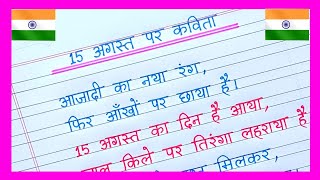 15 अगस्त पर कविता
आजादी का नया रंग,
फिर आँखों पर छाया है।
15 अगस्त का दिन है आया,
लाल किले पर तिरंगा लहराया है
मिलकर,